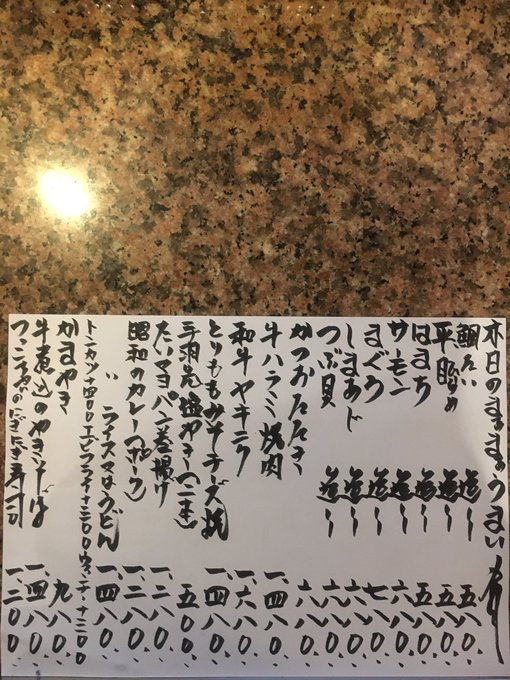 本日のまままのうまい肴
鯛たい 造〜 五八〇、
平目 造〜 五八〇、
はまち 造〜 五八〇、
サーモン 造〜 六八〇、
まぐろ 造〜 七八〇、
しまあじ 造〜 六八〇、
つぶ貝 造〜 六八〇、
かつおたたき 六八〇、
牛ハラミ焼肉 一、四八〇、
和牛ヤキニク 一、六八〇、
とりももみそチーズ焼 一、四八〇、
手羽先塩やき(二本) 五〇〇、
たいマヨパン巻揚げ 一、二八〇、
昭和のカレー(ポーク) 一、二八〇、
ライス又はうどん 一、四八〇、
トンカツ十四〇〇エビフライ十三〇〇
かまやき 九八〇、
牛煮込のやきそば 一、四八〇、
のにぎり寿司 一、二〇〇、